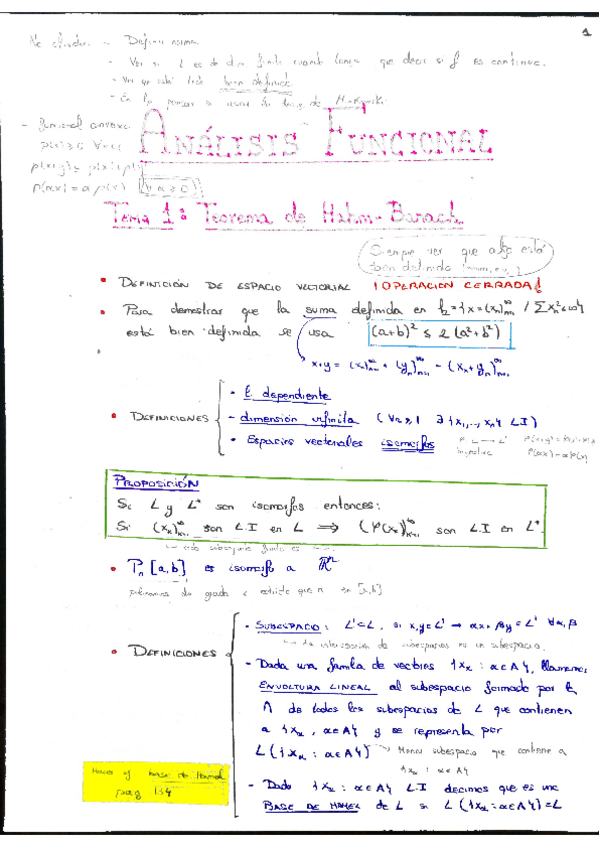 1
No olvidar: - Definir norma
- Ver si L es de dim finita cuando tenga que decir si f es continua.
- Ver que está todo bien definido
- En lp pensar a usar la de Minkowski
- funcional convexo
ANÁLISIS FUNCIONAL
p(x) ≥ 0 ∀x∈L
p(αx) = α p(x) ∀α≥0
Tema 1: Teorema de Hahn-Banach
Siempre ver que algo está bien definido
• DEFINICIÓN DE ESPACIO VECTORIAL ¡OPERACIÓN CERRADA!
• Para demostrar que la suma definida en l₂={x=(xₙ)ₙ₌₁^∞ / ∑xₙ²<∞}
está bien definida se usa (a+b)² ≤ 2(a²+b²)
x+y = (xₙ)ₙ₌₁^∞ + (yₙ)ₙ₌₁^∞ = (xₙ+yₙ)ₙ₌₁^∞
• DEFINICIONES
- L. dependiente
- dimensión infinita (∀n≥1 ∃{x₁,...,xₙ} L.I)
• Espacios vectoriales isomorfos
PROPOSICIÓN
Si L y L* son isomorfos entonces:
Si (xₖ)ₖ₌₁^∞ son L.I en L ⟹ (φ(xₖ))ₖ₌₁^∞ son L.I en L*.
• Pₙ[a,b] es isomorfo a ℝⁿ
polinomios de grado n en [a,b]
• DEFINICIONES
- SUBESPACIO: L'⊂L, si x,y∈L' → αx+βy∈L' ∀α,β
→ la intersección de subespacios es un subespacio.
- Dada una familia de vectores {xα : α∈A}, llamamos
ENVOLTURA LINEAL al subespacio formado por la
∩ de todos los subespacios de L que contienen
a {xα, α∈A} y se representa por
L({xα : α∈A}) → Menor subespacio que contiene a
{xα : α∈A}
- Dado {xα : α∈A} L.I decimos que es una
BASE DE HAMEL de L si L({xα : α∈A})=L
base de Hamel
pag 134